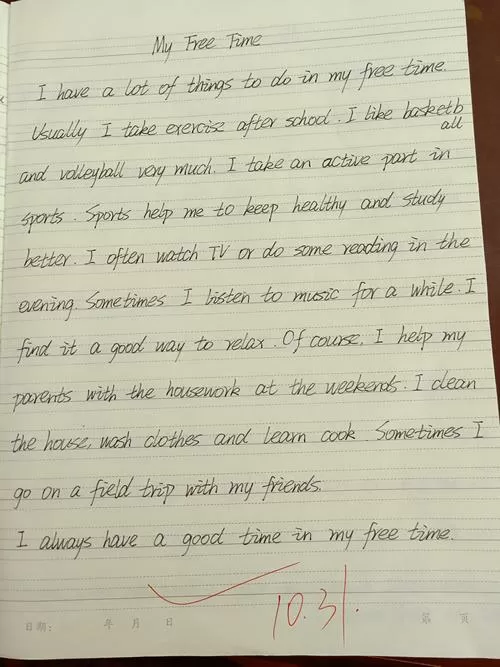 My Free Time
I have a lot of things to do in my free time.
Usually I take exercise after school. I like basketb
all
and volleyball very much. I take an active part in
sports. Sports help me to keep healthy and study
better. I often watch TV or do some reading in the
evening. Sometimes I listen to music for a while. I
find it a good way to relax. Of course, I help my
parents with the housework at the weekends. I clean
the house, wash clothes and learn cook. Sometimes I
go on a field trip with my friends.
I always have a good time in my free time.
10.31.
日期: 年 月 日 第 页